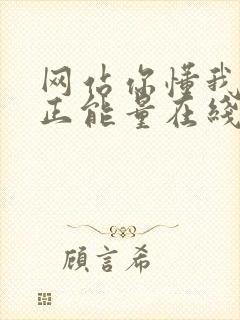 网站你懂我
正能量在线
顾言希